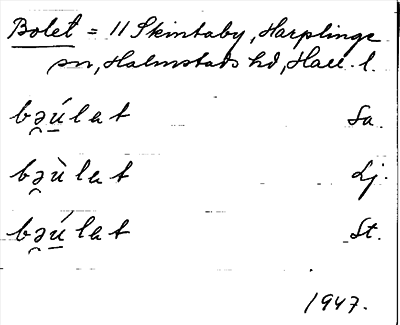 Bolet = 11 Skintaby, Harplinge
sn, Halmstads hd, Hall. l.
bə̯ú̲lat Sa.
bə̯ùlat Lj.
bə̯ú̲lat St.
1947.